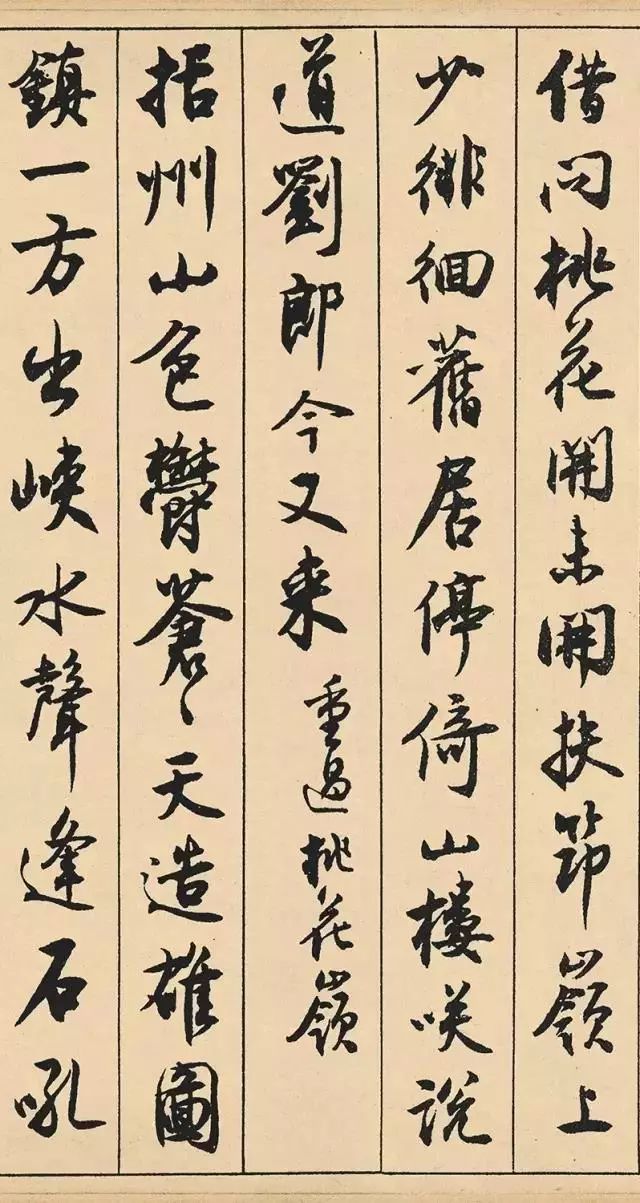 借问桃花開未開扶笻嶺上
少徘徊舊居停倚山樓咲説
道劉郎今又来 重過桃花嶺
括州山色鬱蒼〻天造雄圖
鎮一方出峽水聲逢石吼